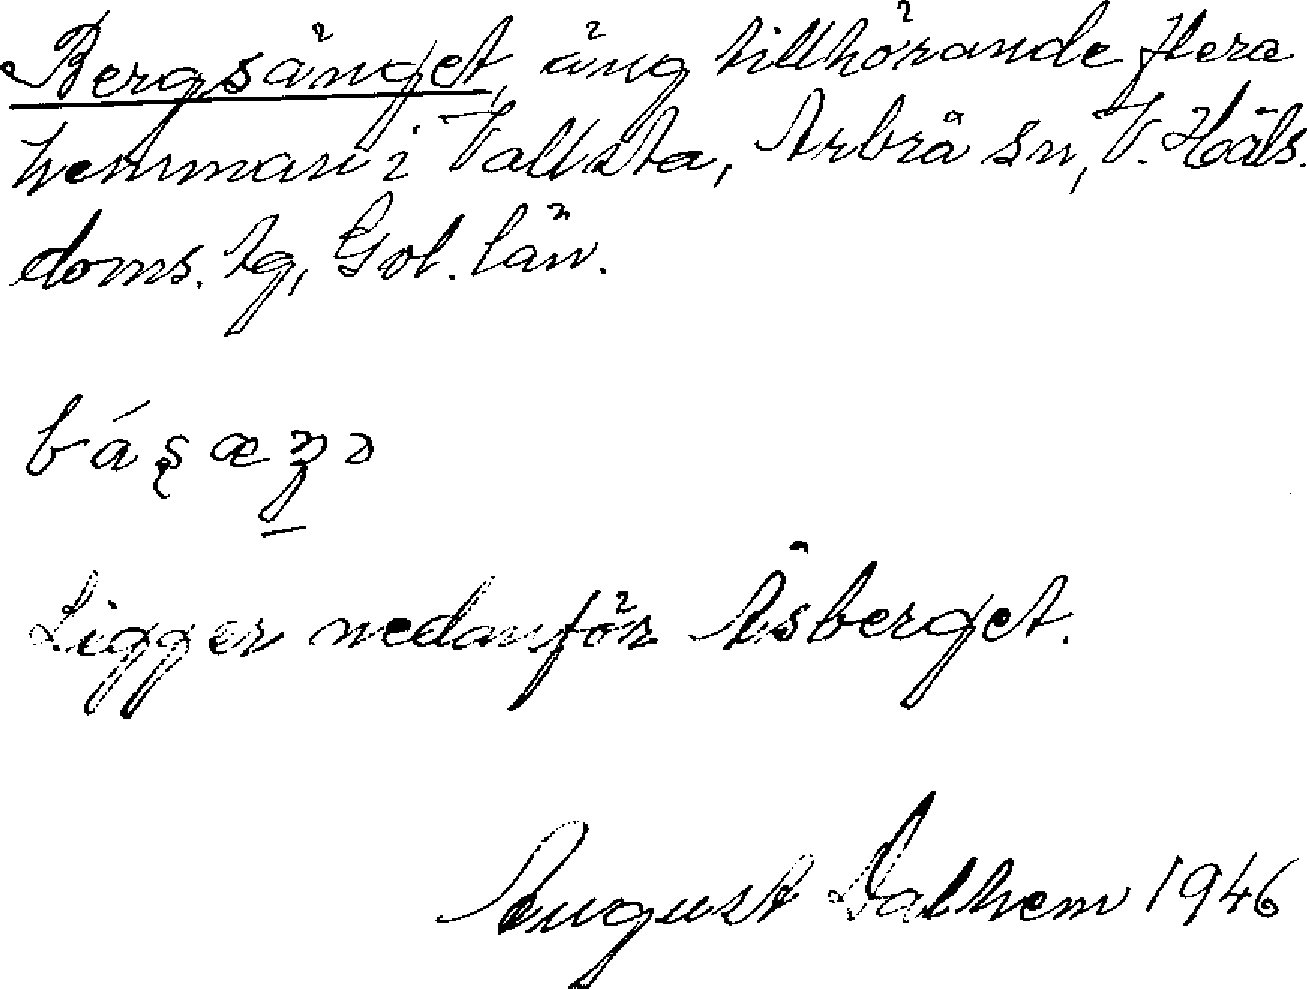 Bergsänget, äng tillhörande flera
hemman i Vallsta, Arbrå sn, V. Häls.
doms. tg, Gvl. län.
Ligger nedanför Åsberget.
August Dalhem 1946